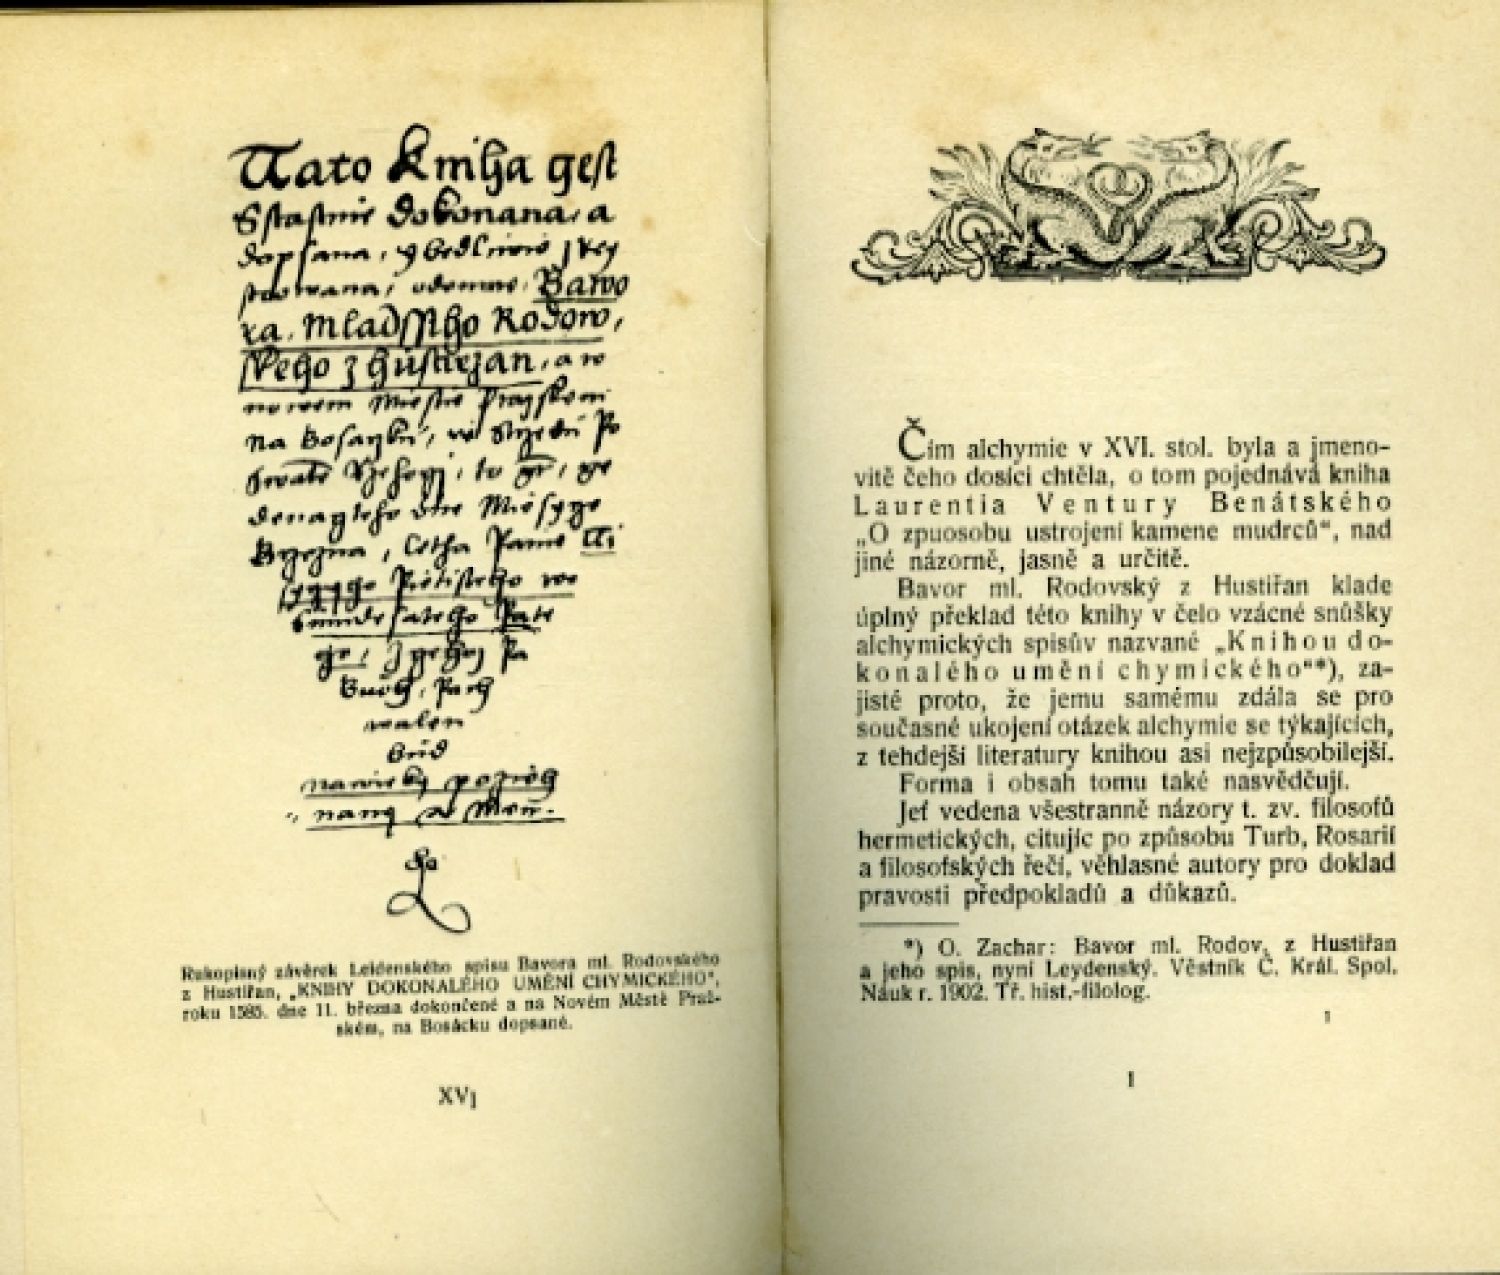 Tato Kniha gest
Sstastnie dokonana, a
dopsana, y bedliwie
Bawo
ra, Mladssiho Rodow,
skeho z Hustirzan, a w
nowem Miestie Prazskem
na Bosaczku, we Strzedu Po
to gt, ge
denagteho dne Miesycze
Brzezna, Letha Panie Ti
Pietisteho
Osmdesateho Pate
Buoh, Pach
walen
bud
nawieky pozieh
nany a Men.
Rukopisný závěrek Leidenského spisu Bavora ml. Rodovského
z Hustiřan, „KNIHY DOKONALÉHO UMĚNÍ CHYMICKÉHO",
roku 1585. dne 11. března dokončené a na Novém Městě Praž-
ském, na Bosácku dopsané.
XVI
Čím alchymie v XVI. stol. byla a jmeno-
vitě čeho dosíci chtěla, o tom pojednává kniha
Laurentia Ventury Benátského
„O zpuosobu ustrojení kamene mudrců", nad
jiné názorně, jasně a určitě.
Bavor ml. Rodovský z Hustiřan klade
úplný překlad této knihy v čelo vzácné snůšky
alchymických spisův nazvané „Knihou do-
konalého umění chymického"*), za-
jisté proto, že jemu samému zdála se pro
současné ukojení otázek alchymie se týkajících,
z tehdejší literatury knihou asi nejzpůsobilejší.
Forma i obsah tomu také nasvědčují.
Jeť vedena všestranně názory t. zv. filosofů
hermetických, citujíc po způsobu Turb, Rosarií
a filosofských řečí, věhlasné autory pro doklad
pravosti předpokladů a důkazů.
*) O. Zachar: Bavor ml. Rodov. z Hustiřan
a jeho spis, nyní Leydenský. Věstník Č. Král. Spol.
Náuk r. 1902. Tř. hist.-filolog.
1
1